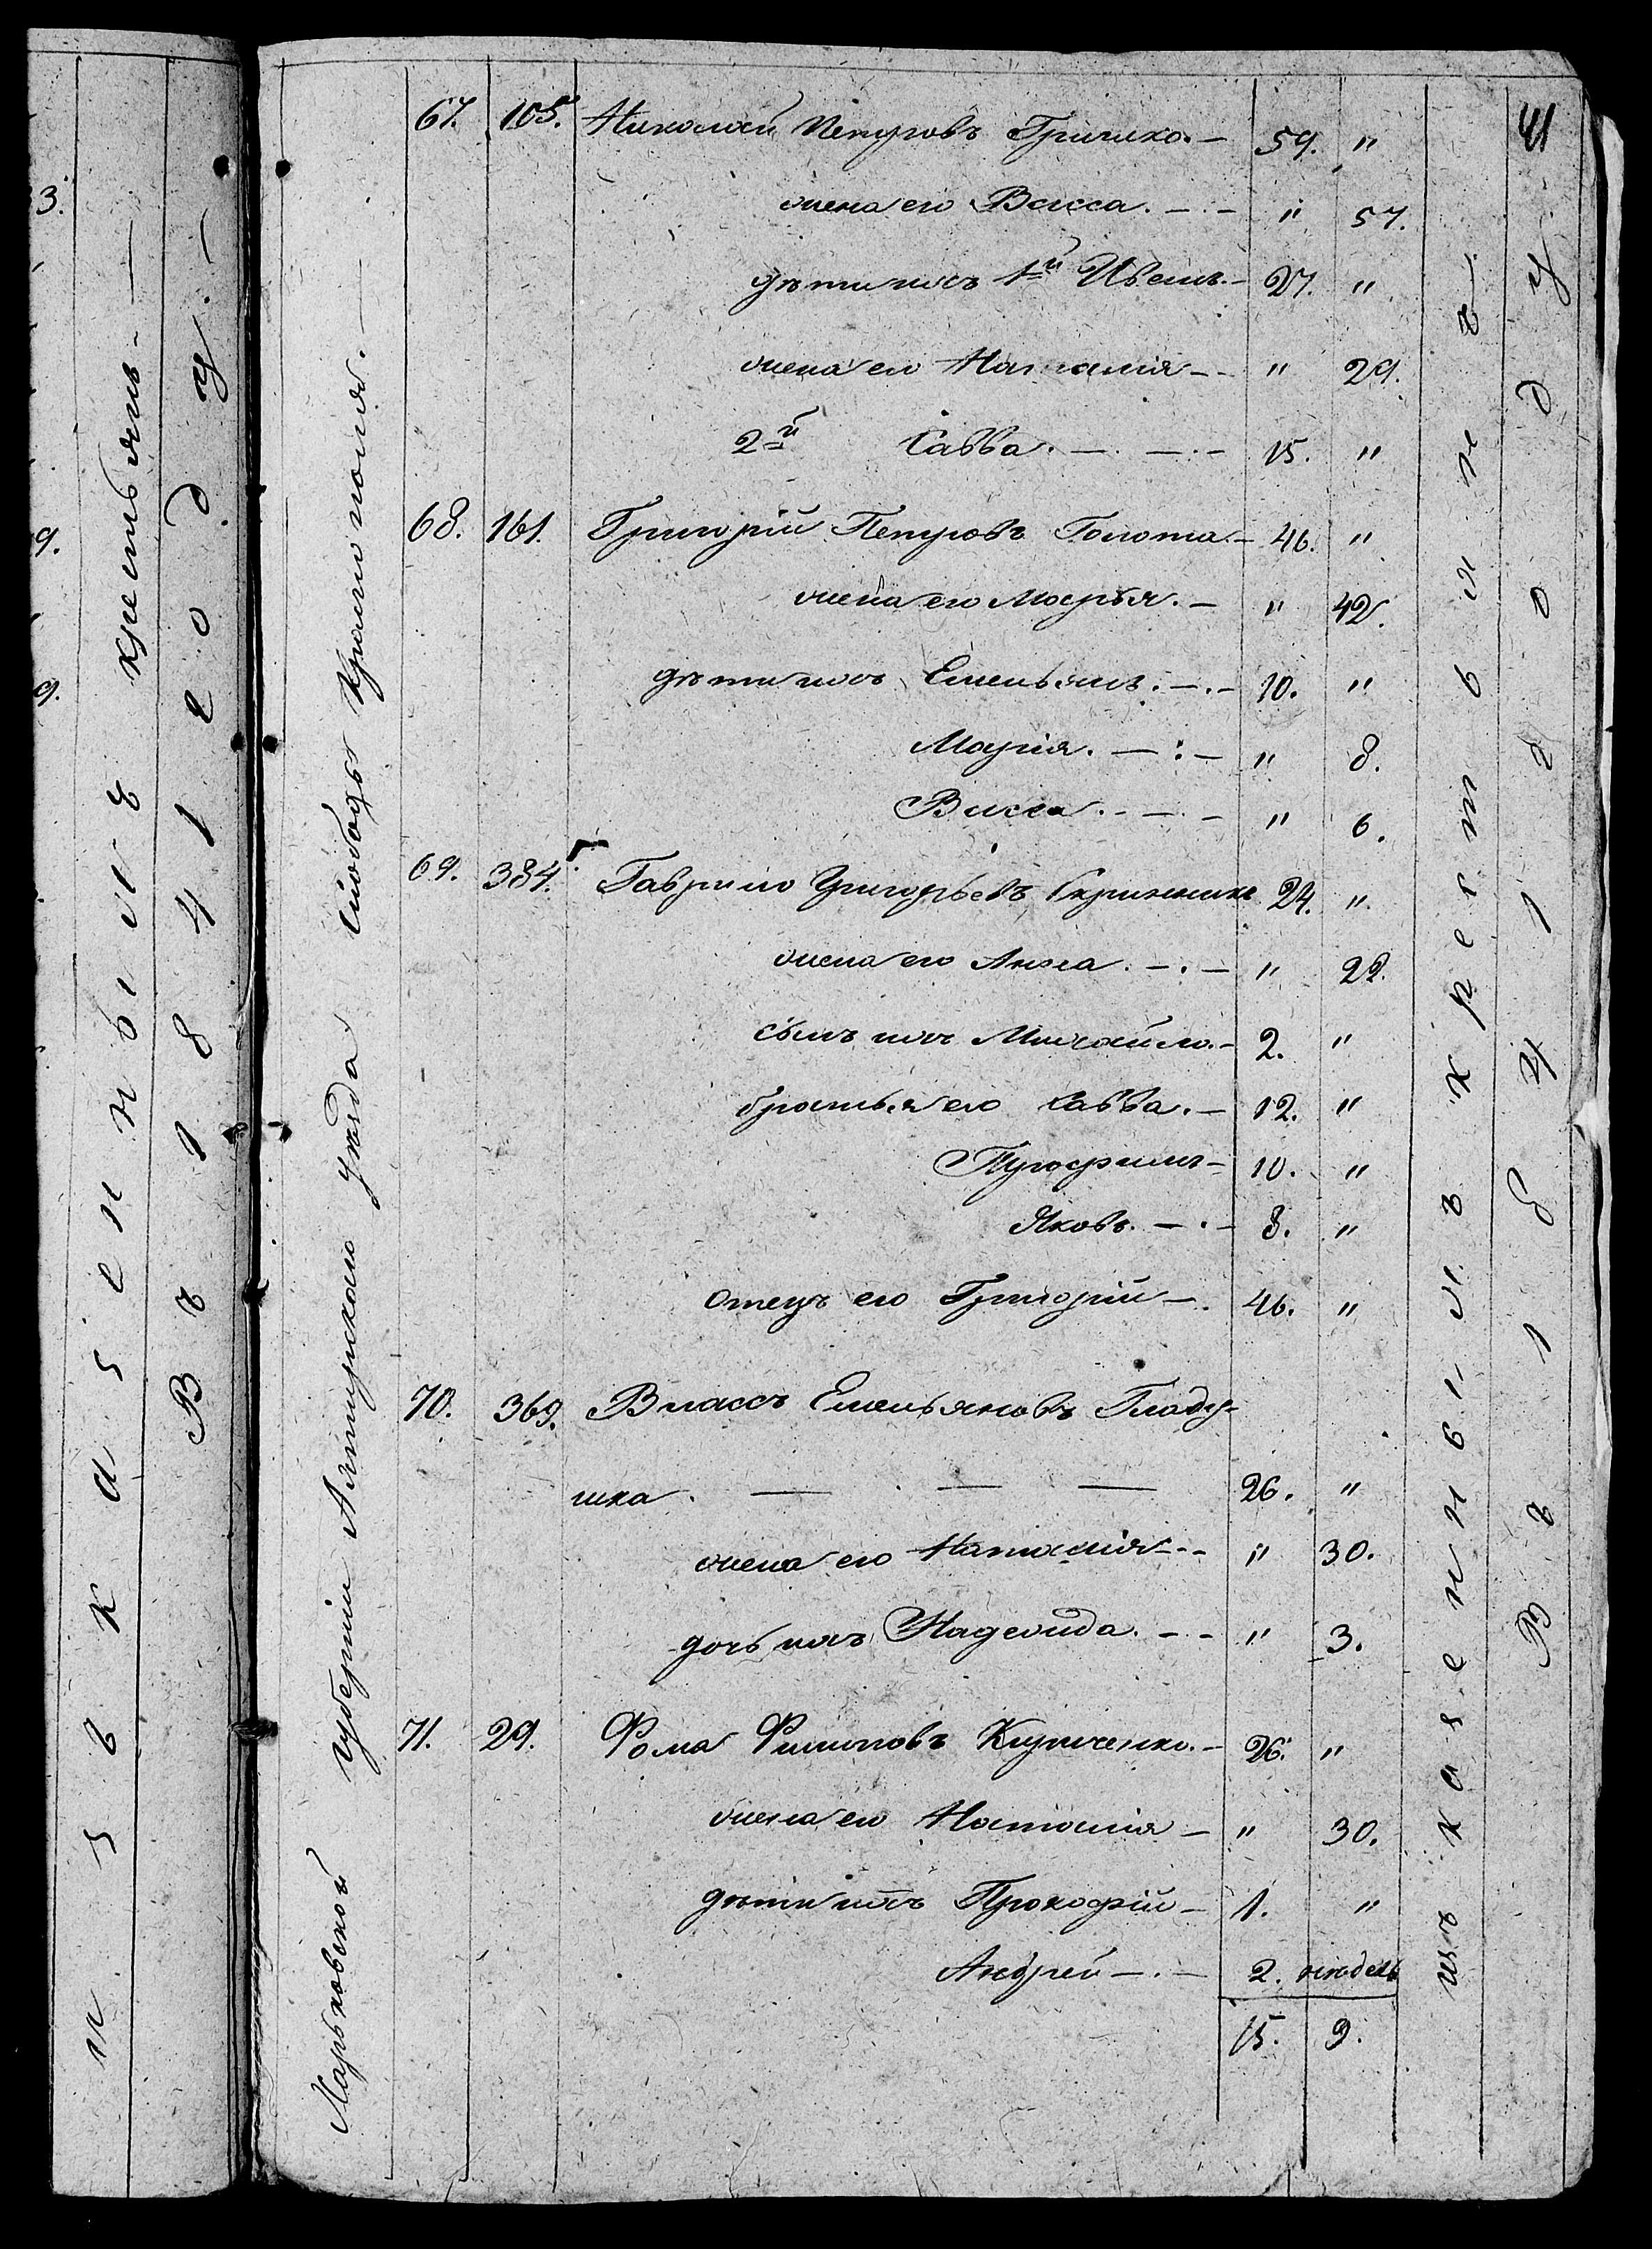 41
67. 105. Николай Петровъ Гришко. — 59. "
жена его Васса. — " 57.
дѣти ихъ 1й Иванъ. — 27. "
жена его Наталія — " 29.
2й Савва. — 15. "
68. 161. Григорій Петровъ Голота — 46. "
жена его Марья. — " 42.
дѣти ихъ Емельянъ. — 10. "
Марія. — " 8.
Васса. — " 6.
69. 384. Гаврило Григорьевъ Скрынникъ 24. "
жена его Анна. — " 22.
сынъ ихъ Михайло. — 2. "
братья его Савва. — 12. "
Трофимъ — 10. "
Яковъ. — 8. "
Отецъ его Григорій — 46. "
70. 369. Власъ Емельяновъ Гладу-
шка. — — — 26. "
жена его Наталія — " 30.
дочь ихъ Надежда. — " 3.
71. 29. Фома Филиповъ Кириченко. — 26. "
жена его Наталія — " 30.
дѣти ихъ Прокофій — 1. "
Андрей — 2. недѣль
15. 9.
Харьковской Губерніи Ахтырскаго уѣзда Слободы Краснополья. —
изъ казенныхъ крестьянъ.
Въ 1841 году
изъ казенныхъ крестьянъ. —
Въ 1841 году. —
3.
9.
9.